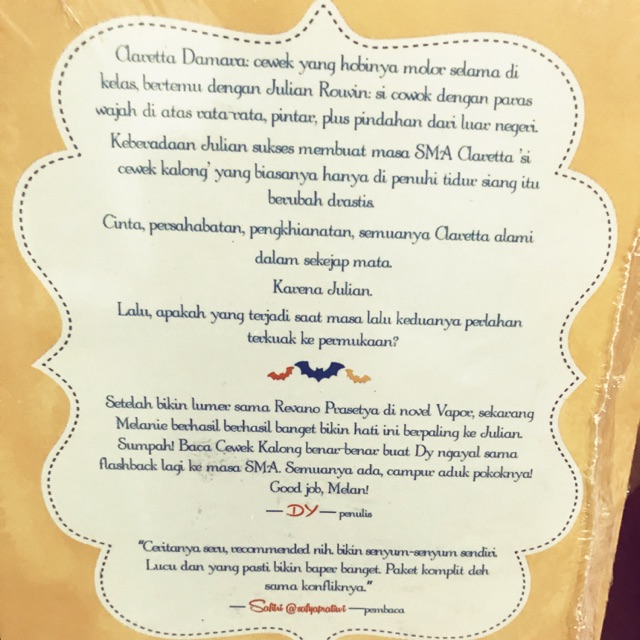 Claretta Damara: cewek yang hobinya molor selama di
kelas, bertemu dengan Julian Rouvin: si cowok dengan paras
wajah di atas rata-rata, pintar, plus pindahan dari luar negeri.
Keberadaan Julian sukses membuat masa SMA Claretta 'si
cewek kalong' yang biasanya hanya di penuhi tidur siang itu
berubah drastis.
Cinta, persahabatan, pengkhianatan, semuanya Claretta alami
dalam sekejap mata.
Karena Julian.
Lalu, apakah yang terjadi saat masa lalu keduanya perlahan
terkuak ke permukaan?
Setelah bikin lumer sama Revano Prasetya di novel Vapor, sekarang
Melanie berhasil berhasil banget bikin hati ini berpaling ke Julian.
Sumpah! Baca Cewek Kalong benar-benar buat Dy ngayal sama
flashback lagi ke masa SMA. Semuanya ada, campur aduk pokoknya!
Good job, Melan!
— DY — penulis
"Ceritanya seru, recommended nih. bikin senyum-senyum sendiri.
Lucu dan yang pasti bikin baper banget. Paket komplit deh
sama konfliknya."
— Safitri @sofyapratiwi — pembaca